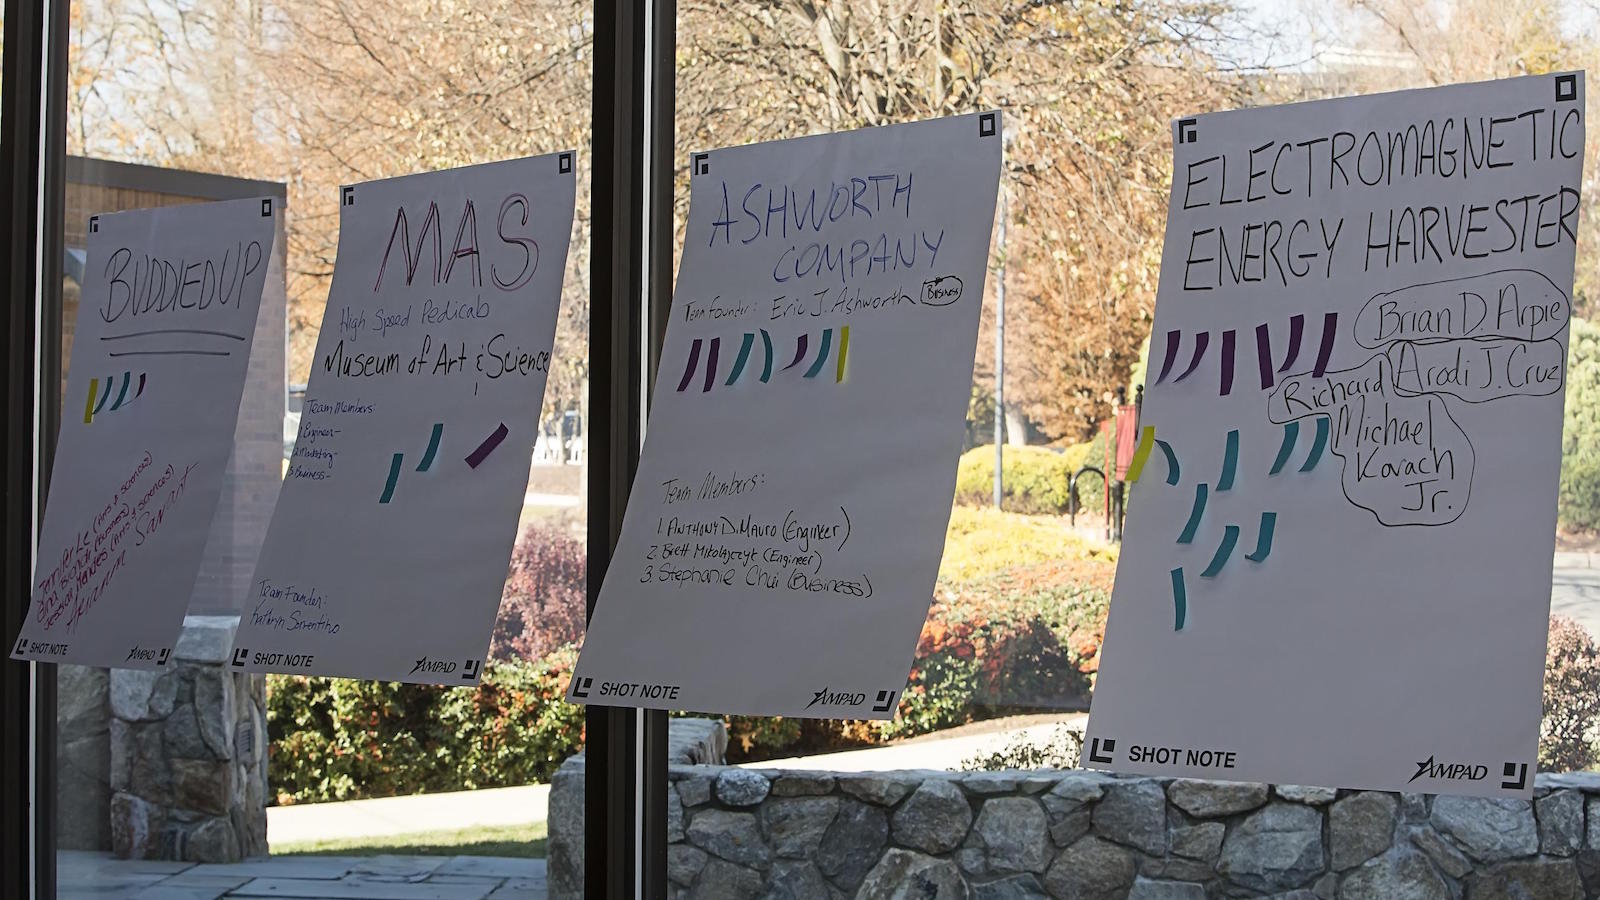 BUDDIEDUP
Jennifer Le (Arts & Sciences)
Gina Bianchi (Business)
Jessica (Arts & Sciences)
Savant
SHOT NOTE
AMPAD
MAS
High Speed Pedicab
Museum of Art & Science
Team Members:
1. Engineer-
2. Marketing-
3. Business-
Team Founder:
Kathryn Sorrentino
SHOT NOTE
AMPAD
ASHWORTH
COMPANY
Team Founder: Eric J. Ashworth Business
Team Members:
1. ANTHONY D. Mauro (Engineer)
2. Brett Mikolajczyk (Engineer)
3. Stephanie Chui (Business)
SHOT NOTE
AMPAD
ELECTROMAGNETIC
ENERGY HARVESTER
Brian D. Arpie
Richard Arodi J. Cruz
Michael
Kovach
Jr.
SHOT NOTE
AMPAD